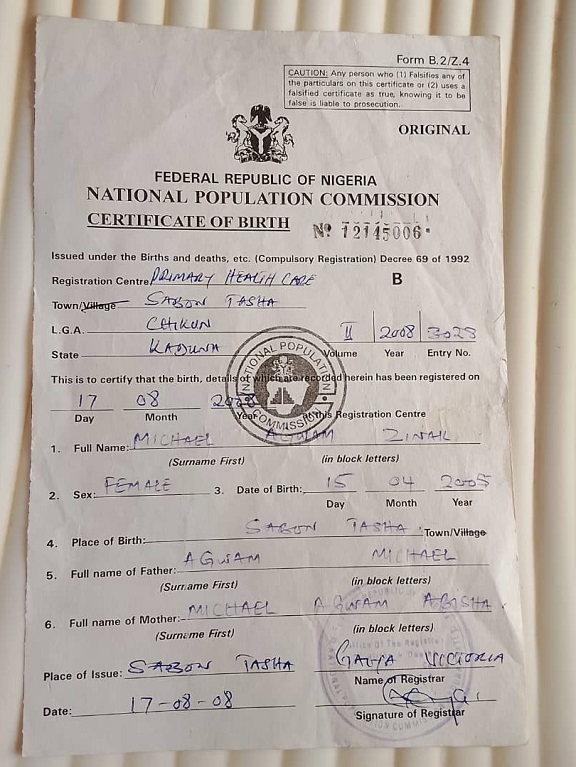 Form B.2/Z.4
CAUTION: Any person who (1) Falsifies any of
the particulars on this certificate or (2) uses a
falsified certificate as true, knowing it to be
false is liable to prosecution.
ORIGINAL
FEDERAL REPUBLIC OF NIGERIA
NATIONAL POPULATION COMMISSION
CERTIFICATE OF BIRTH Nº 12145006
Issued under the Births and deaths, etc. (Compulsory Registration) Decree 69 of 1992
Registration Centre PRIMARY HEALTH CARE B
Town/Village SABON TASHA
L.G.A. CHIKUN II 2008 3028
State KADUNA Volume Year Entry No.
NATIONAL POPULATION COMMISSION
This is to certify that the birth, details of which are recorded herein has been registered on
17 08 2008
Day Month Year at this Registration Centre
1. Full Name: MICHAEL AGWAM
(Surname First) (in block letters)
2. Sex: FEMALE 3. Date of Birth: 15 04 2005
Day Month Year
4. Place of Birth: SABON TASHA Town/Village
5. Full name of Father: AGWAM MICHAEL
(Surname First) (in block letters)
6. Full name of Mother: MICHAEL AGWAM ABISHA
(Surname First) (in block letters)
Place of Issue: SABON TASHA VICTORIA
Name of Registrar
Date: 17-08-08
Signature of Registrar